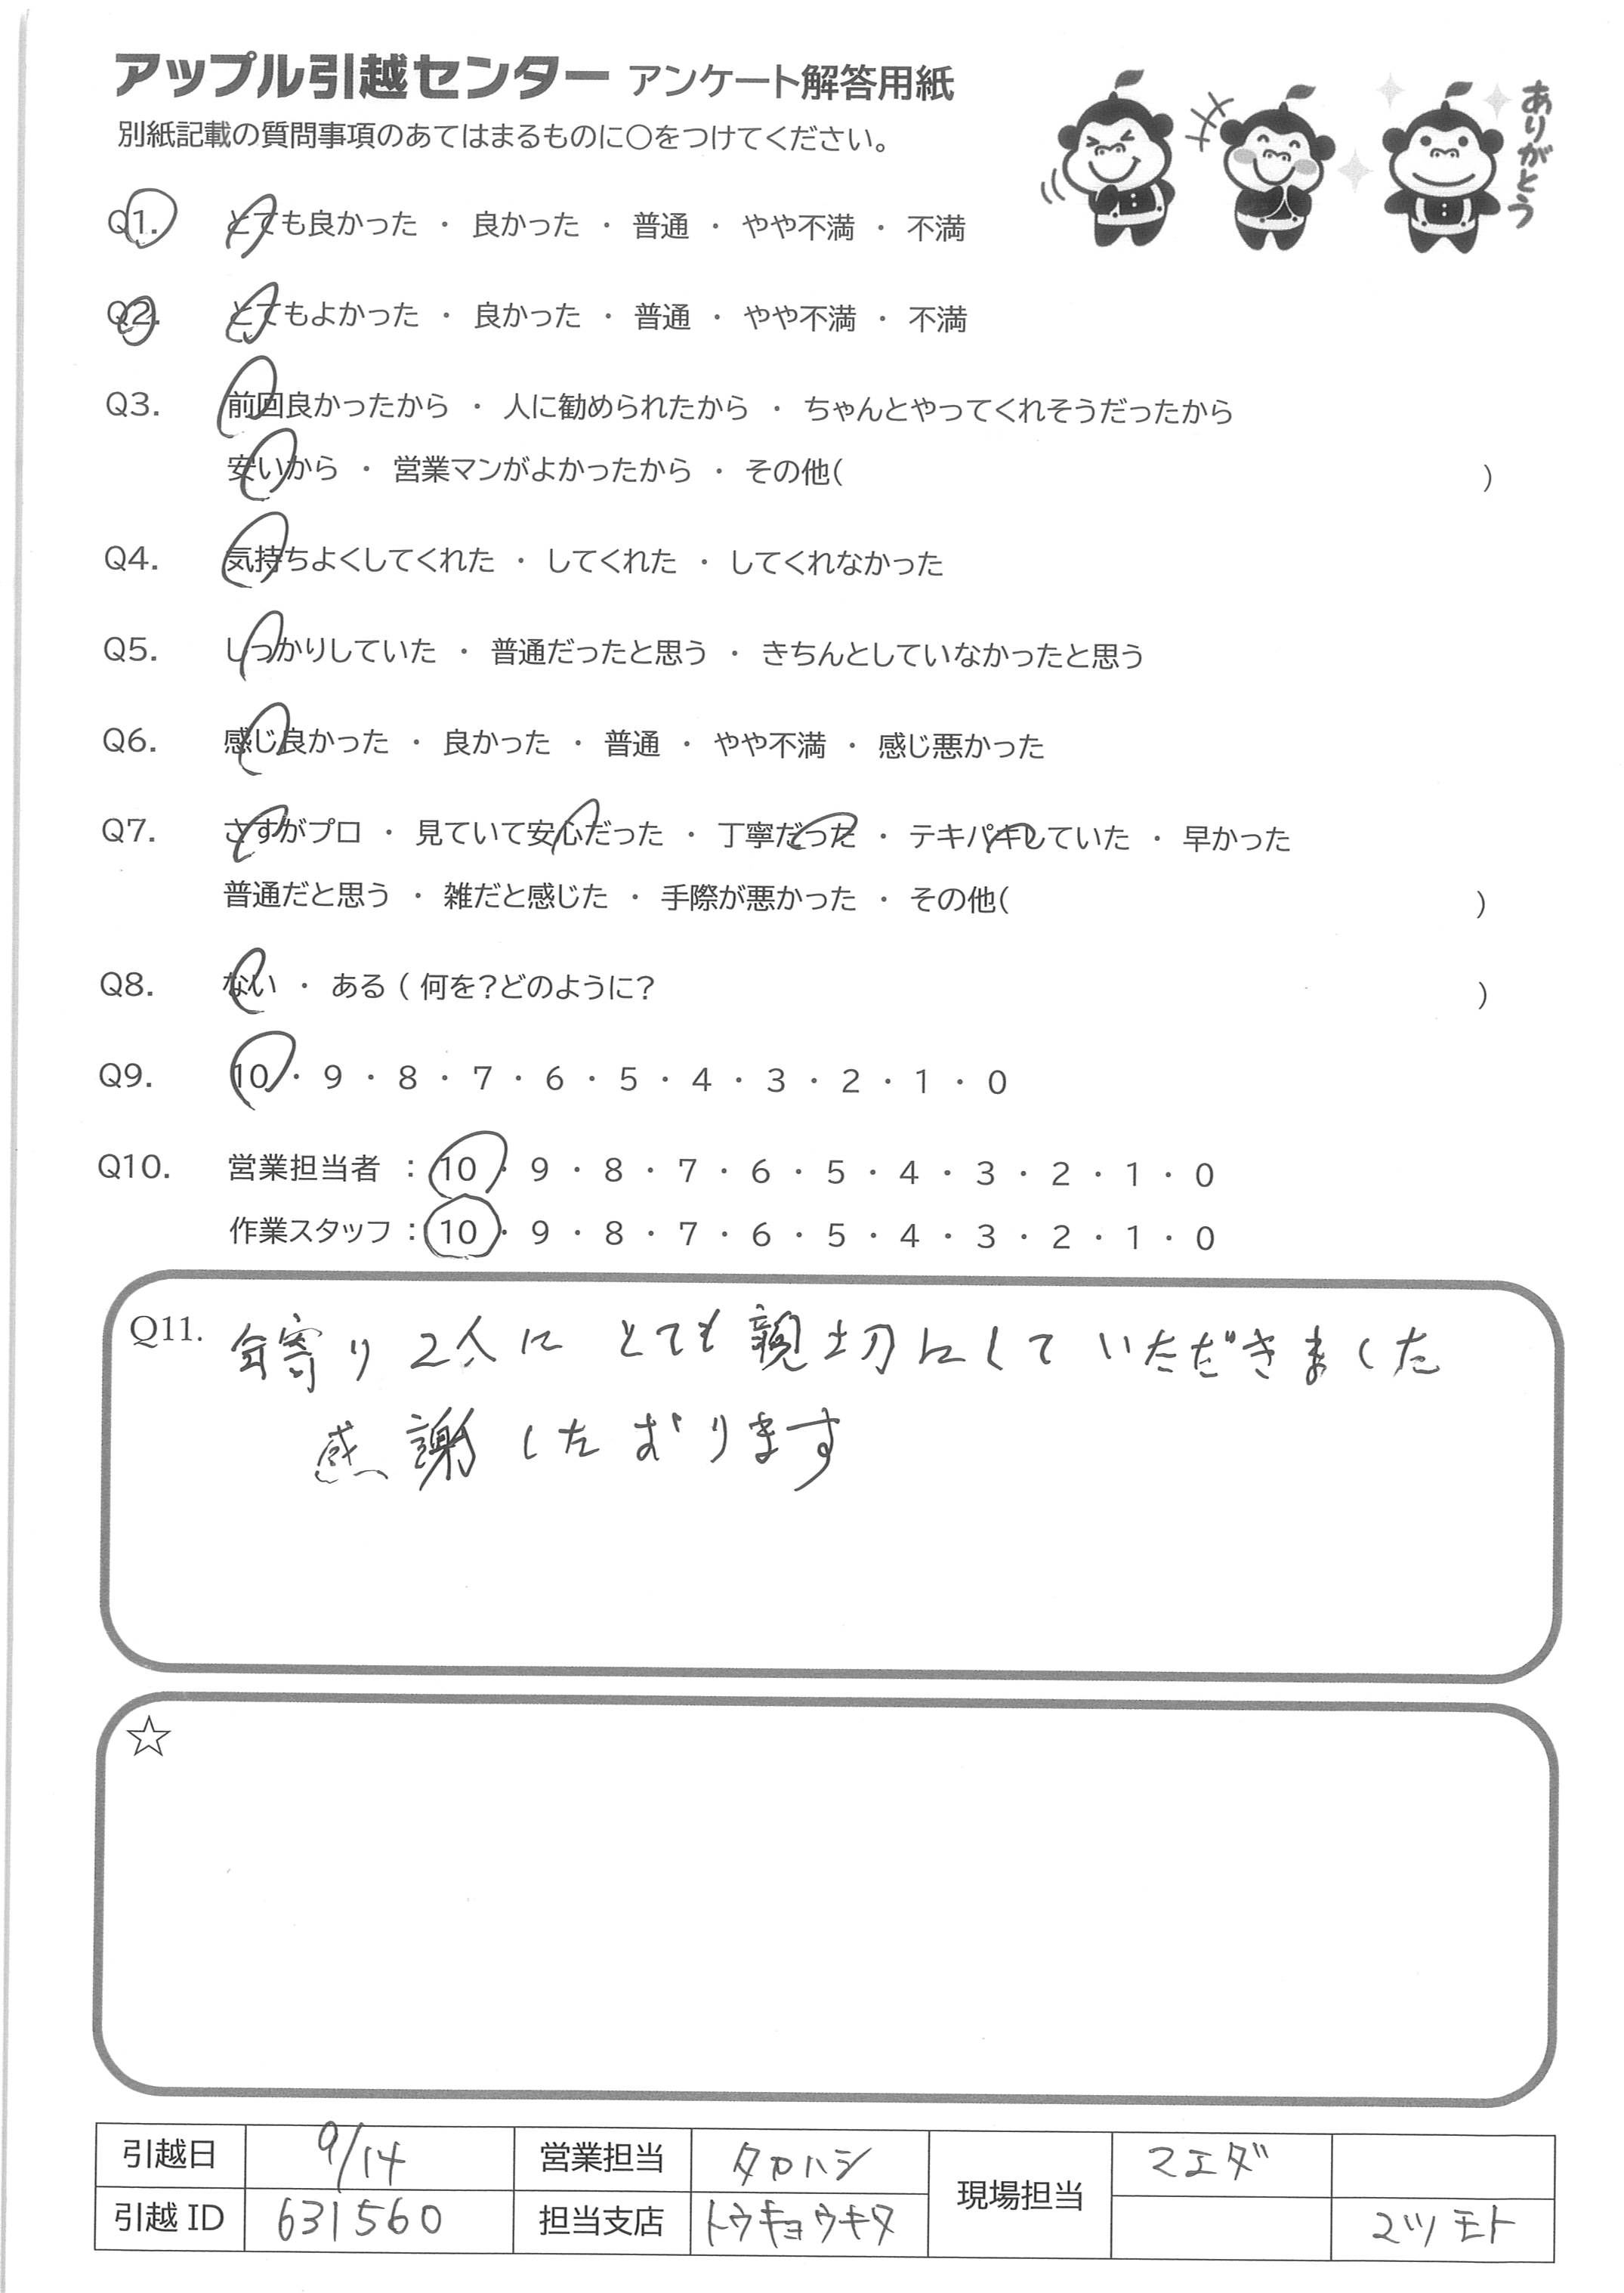 アップル引越センター アンケート解答用紙
別紙記載の質問事項のあてはまるものに○をつけてください。
ありがとう
Q1. とても良かった ・ 良かった ・ 普通 ・ やや不満 ・ 不満
Q2. とてもよかった ・ 良かった ・ 普通 ・ やや不満 ・ 不満
Q3. 前回良かったから ・ 人に勧められたから ・ ちゃんとやってくれそうだったから
安いから ・ 営業マンがよかったから ・ その他( )
Q4. 気持ちよくしてくれた ・ してくれた ・ してくれなかった
Q5. しっかりしていた ・ 普通だったと思う ・ きちんとしていなかったと思う
Q6. 感じ良かった ・ 良かった ・ 普通 ・ やや不満 ・ 感じ悪かった
Q7. さすがプロ ・ 見ていて安心だった ・ 丁寧だった ・ テキパキしていた ・ 早かった
普通だと思う ・ 雑だと感じた ・ 手際が悪かった ・ その他( )
Q8. ない ・ ある ( 何を？どのように？ )
Q9. 10 ・ 9 ・ 8 ・ 7 ・ 6 ・ 5 ・ 4 ・ 3 ・ 2 ・ 1 ・ 0
Q10. 営業担当者 ： 10 ・ 9 ・ 8 ・ 7 ・ 6 ・ 5 ・ 4 ・ 3 ・ 2 ・ 1 ・ 0
作業スタッフ ： 10 ・ 9 ・ 8 ・ 7 ・ 6 ・ 5 ・ 4 ・ 3 ・ 2 ・ 1 ・ 0
Q11. 年寄り2人に とても親切にして いただきました
感謝したおります
☆
引越日 9/14 営業担当 タカハシ 現場担当 マエダ
引越ID 631560 担当支店 トウキョウキタ マツモト